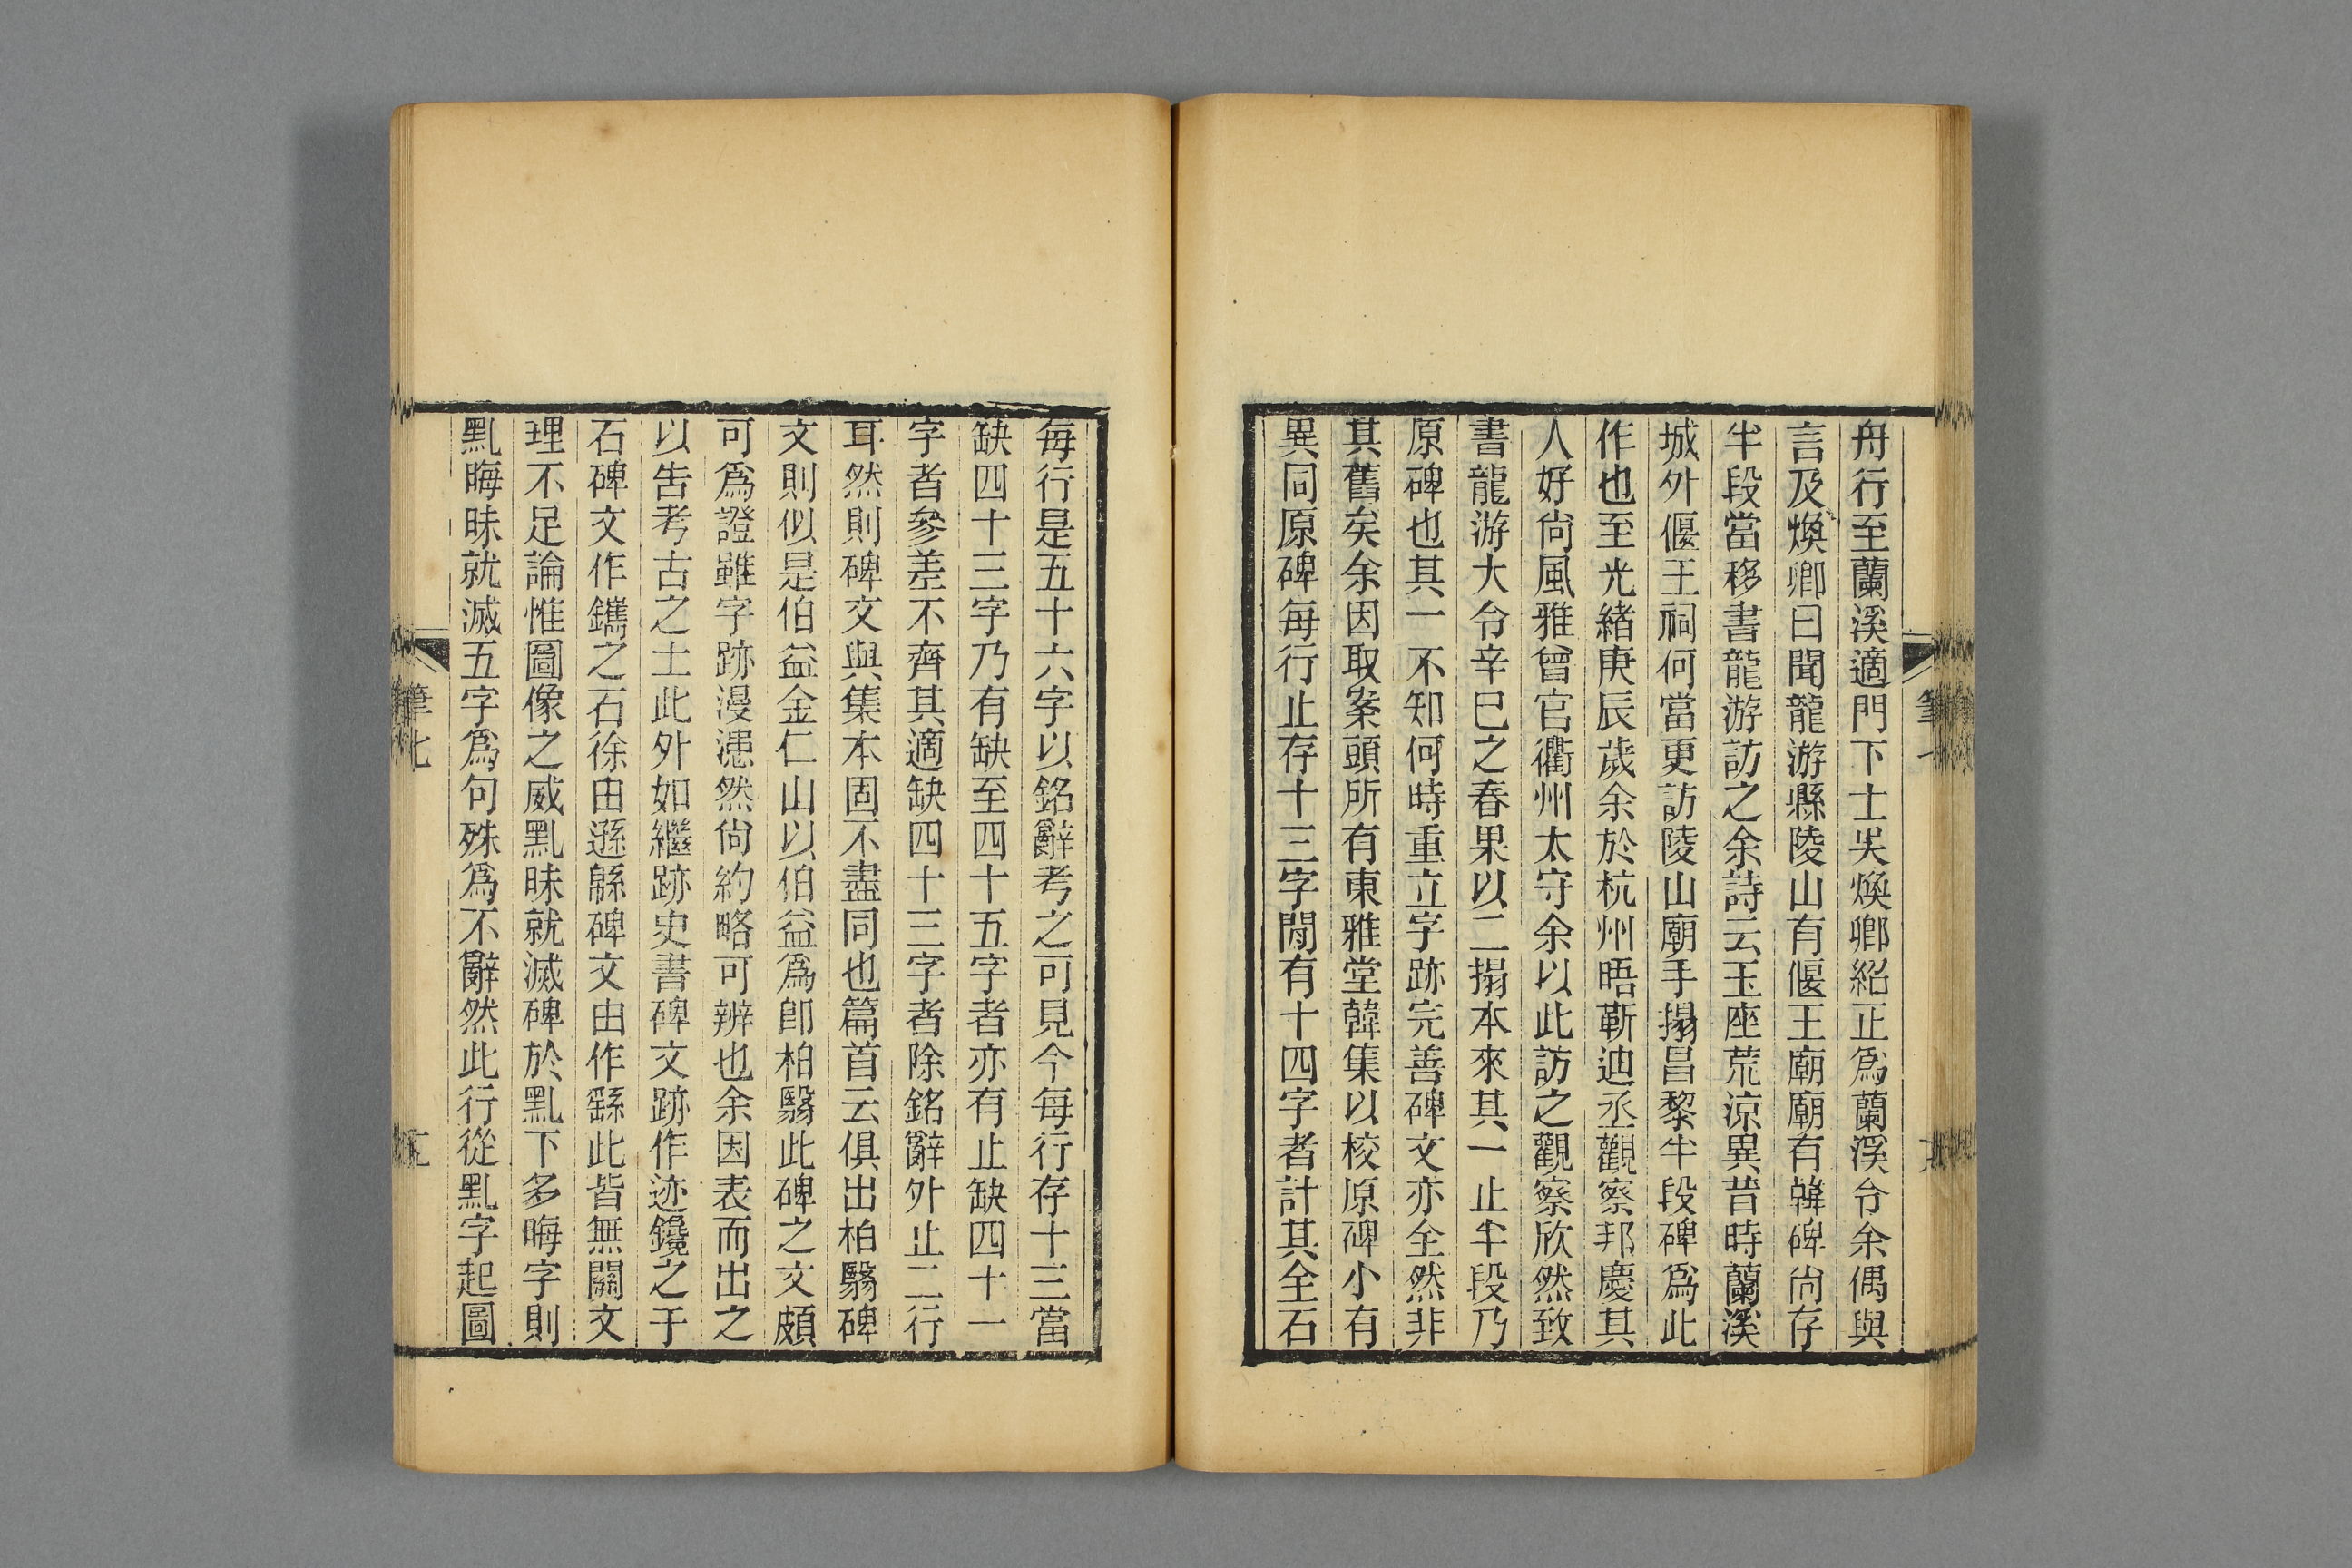 舟行至蘭溪適門下士吳煥卿紹正爲蘭溪令余偶與
言及煥卿曰聞龍游縣陵山有偃王廟廟有韓碑尙存
半段當移書龍游訪之余詩云玉座荒涼異昔時蘭溪
城外偃王祠何當更訪陵山廟手搨昌黎半段碑爲此
作也至光緒庚辰歲余於杭州晤靳迪丞觀察邦慶其
人好尙風雅曾官衢州太守余以此訪之觀察欣然致
書龍游大令辛巳之春果以二搨本來其一止半段乃
原碑也其一不知何時重立字跡完善碑文亦全然非
其舊矣余因取案頭所有東雅堂韓集以校原碑小有
異同原碑每行止存十三字閒有十四字者計其全石
筆
每行是五十六字以銘辭考之可見今每行存十三當
缺四十三字乃有缺至四十五字者亦有止缺四十一
字者參差不齊其適缺四十三字者除銘辭外止二行
耳然則碑文與集本固不盡同也篇首云俱出柏翳碑
文則似是伯益金仁山以伯益爲卽柏翳此碑之文頗
可爲證雖字跡漫漶然尙約略可辨也余因表而出之
以吿考古之士此外如繼跡史書碑文跡作迹鑱之于
石碑文作鐫之石徐由遜緜碑文由作繇此皆無關文
理不足論惟圖像之威黓昧就滅碑於黓下多晦字則
黓晦昧就滅五字爲句殊爲不辭然此行從黓字起圖
筆七